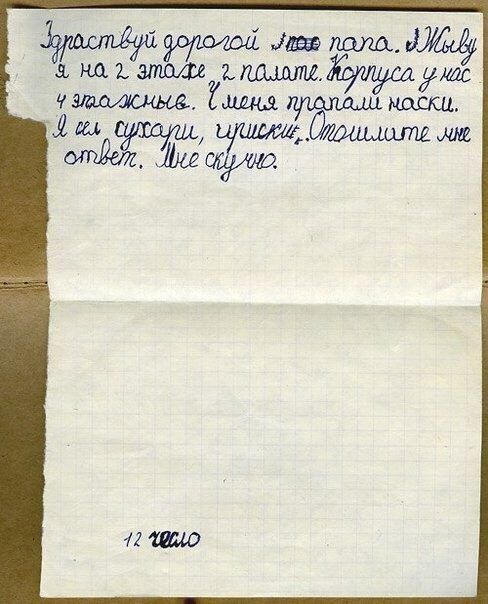 Здраствуй дорогой папа. Жыву
я на 2 этаже 2 палате. Корпуса у нас
4 этажные. У меня пропали наски.
Я ел сухари, ириски. Отошлите мне
ответ. Мне скучно.
12 число